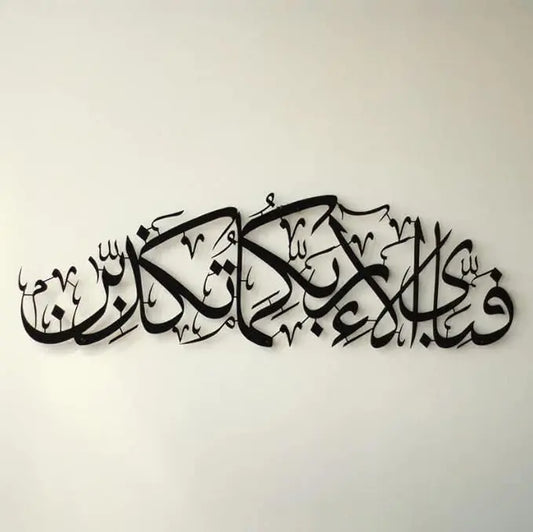 فَبِأَيِّ آلَاءِ رَبِّكُمَا تُكَذِّبَنِ